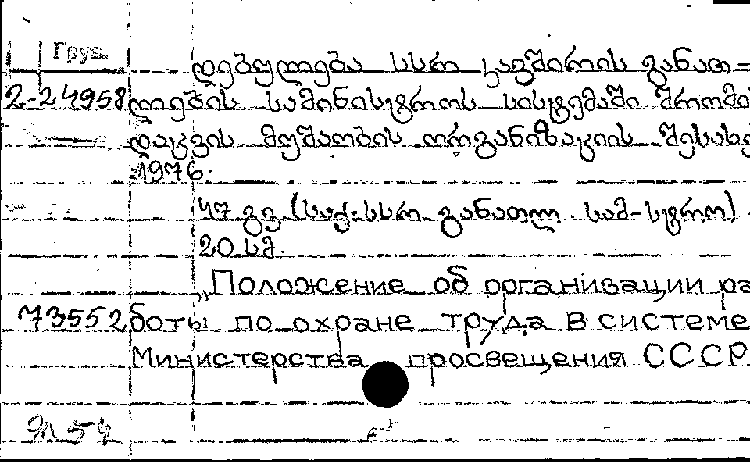 Груз.
დებულება სსრ კავშირის განათ-
2-24958 ლების სამინისტროს სისტემაში შრომის
დაცვის მუშაობის ორგანიზაციის შესახებ
1976.
47 გვ. (საქ. სსრ განათლ. სამ-სტრო)
20 სმ.
„Положение об организации ра
73552 боты по охране труда в системе
Министерства просвещения СССР
54